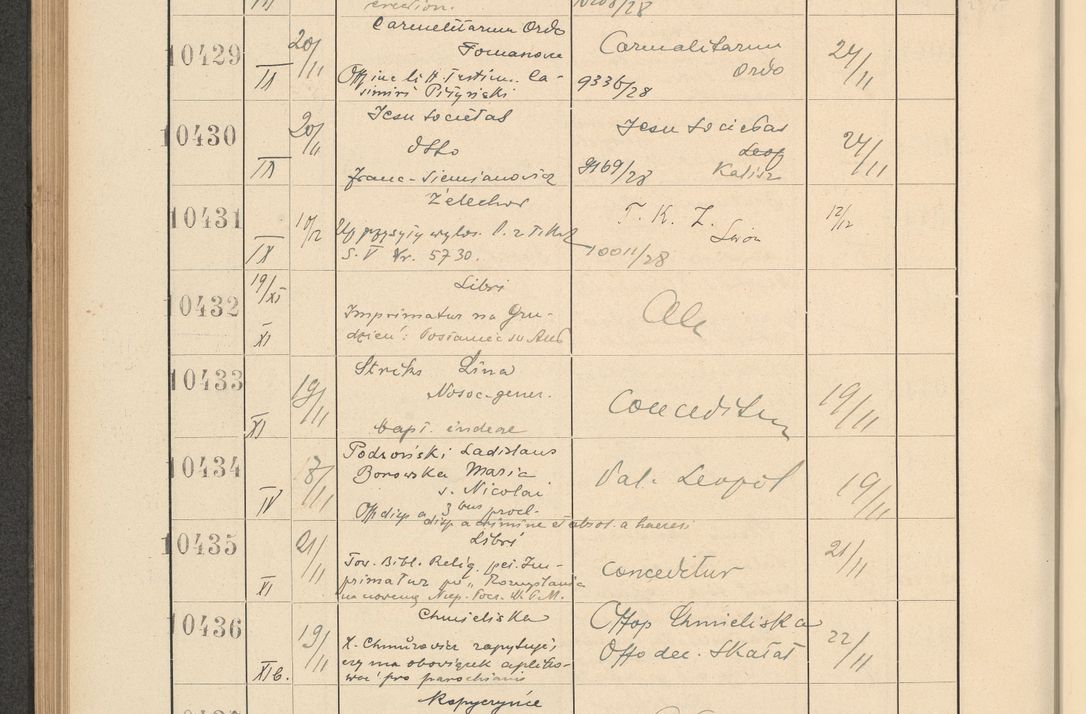 erection.
10429
IX
20/11
Carmelitarum Ordo
Tomanow
Offic. litt. Testim. Ca-
simiri Piżyński
Carmelitarum
Ordo
9336/28
24/11
10430
IX
20/11
Jesu Societas
Otto
Franc. Siemianowicz
Jesu Societas
Leop
Kalisz
9169/28
24/11
10431
IX
10/12
Żelechow
S. V Nr. 5730.
T. K. Z.
Lwów
10011/28
12/12
10432
19/XI
XI
Libri
Imprimatur na Gru-
dzień: Posłaniec
10433
XI
19/11
Lina
bapt. infidere
Conceditur
19/11
10434
IV
17/11
Podroński Ladislaus
Borowska Maria
s. Nicolai
Off disp a 3 bus procl.
disp a crimine et absol. a haeresi
Pal. Leopol
19/11
10435
XI
21/11
Libri
Tow. Bibl. Relig. Im-
primatur "Rozmyślania
na nowennę Niep. Pocz.
conceditur
21/11
10436
XI b.
19/11
Chmieliska
X. Chmurowicz zapytuje,
czy ma obowiązek apliko-
wać pro parochianis
Offop Chmieliska
Offo dec. Skałat
22/11
Kopyczyńce